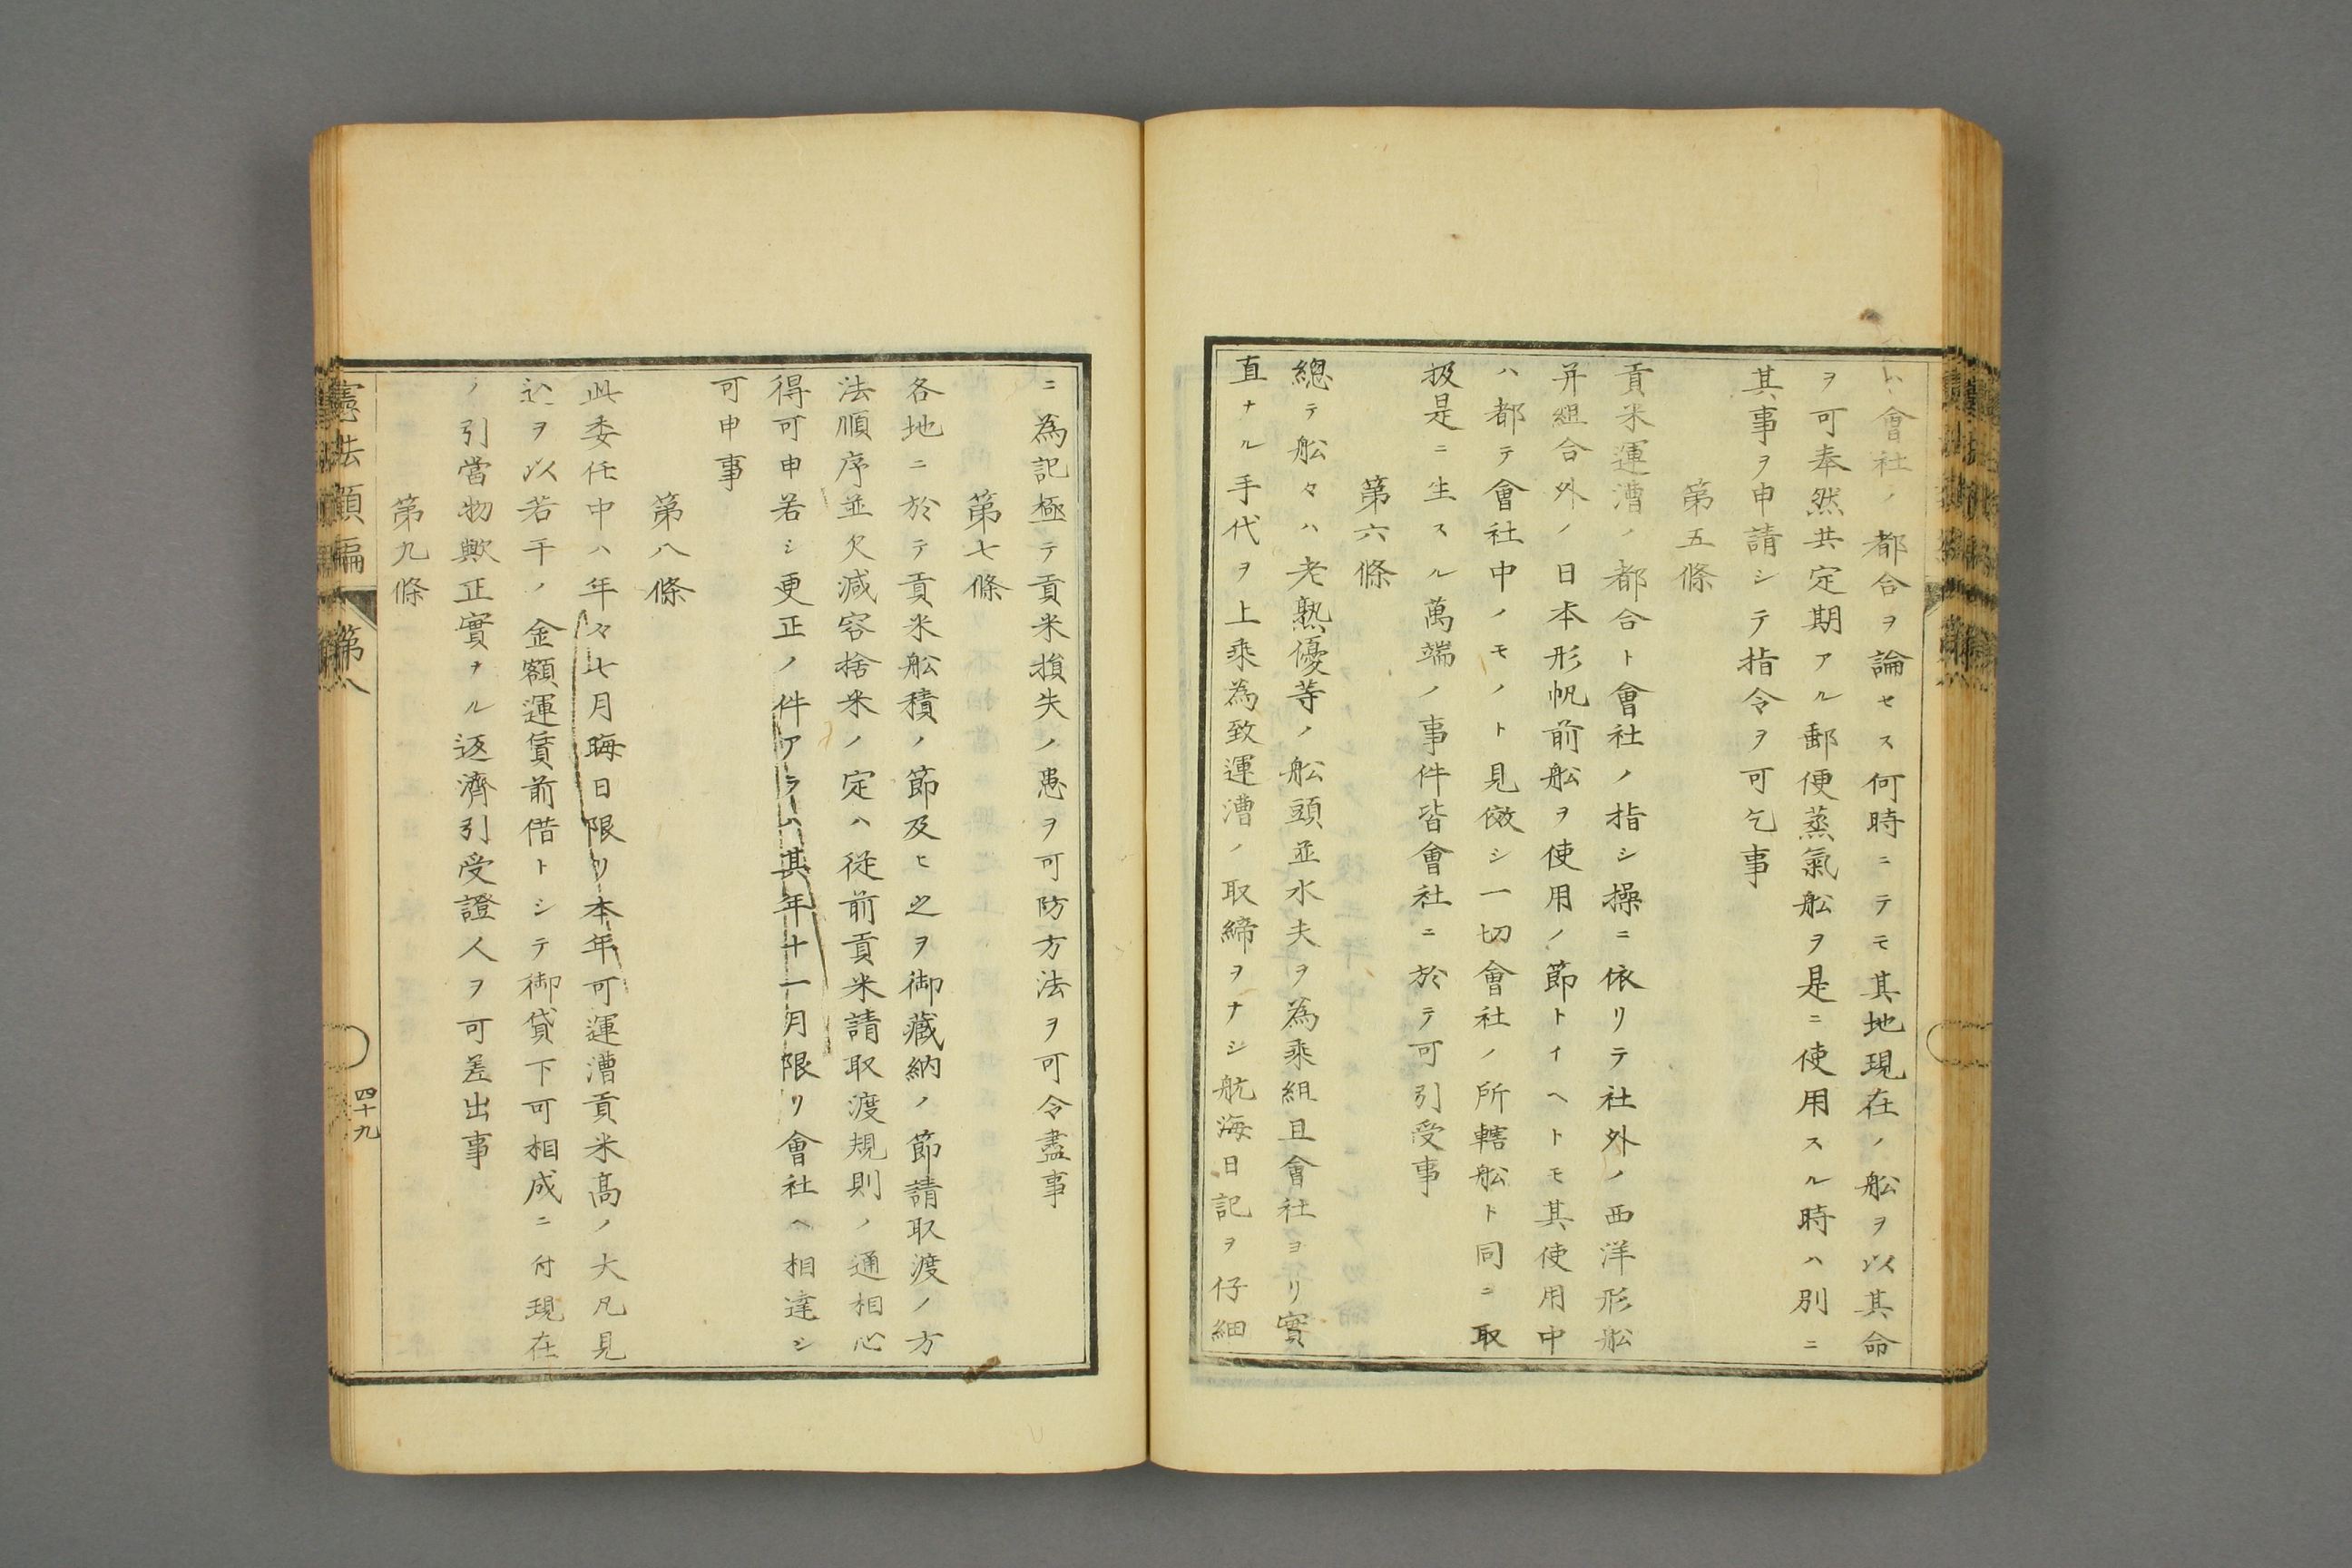 ハ會社ノ都合ヲ論セス何時ニテモ其地現在ノ舩ヲ以其命
ヲ可奉然共定期アル郵便蒸氣舩ヲ是ニ使用スル時ハ別ニ
其事ヲ申請シテ指令ヲ可乞事
第五條
貢米運漕ノ都合ト會社ノ指シ操ニ依リテ社外ノ西洋形舩
并組合外ノ日本形帆前舩ヲ使用ノ節トイヘトモ其使用中
ハ都テ會社中ノモノト見傚シ一切會社ノ所轄舩ト同ニ取
扱是ニ生スル萬端ノ事件皆會社ニ於テ可引受事
第六條
總テ舩々ハ老熟優等ノ舩頭並水夫ヲ為乘組且會社ヨリ實
直ナル手代ヲ上乘為致運漕ノ取締ヲナシ航海日記ヲ仔細
ニ為記極テ貢米損失ノ患ヲ可防方法ヲ可令盡事
第七條
各地ニ於テ貢米舩積ノ節及ヒ之ヲ御藏納ノ節請取渡ノ方
法順序並欠減容捨米ノ定ハ從前貢米請取渡規則ノ通相心
得可申若シ更正ノ件アラハ其年十一月限リ會社ヘ相達シ
可申事
第八條
此委任中ハ年々七月晦日限リ本年可運漕貢米高ノ大凡見
込ヲ以若干ノ金額運賃前借トシテ御貸下可相成ニ付現在
ノ引當物歟正實ナル返濟引受證人ヲ可差出事
第九條
憲法類編 第八
四十九